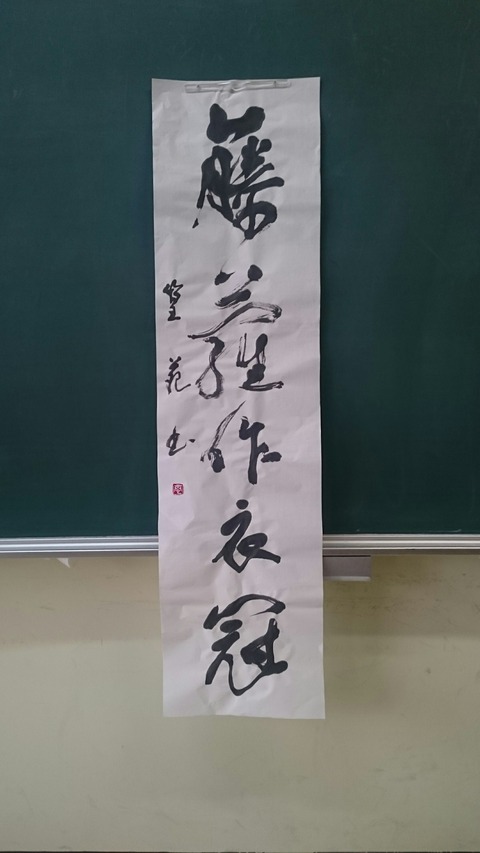 藤蘿作衣冠
篁苑書